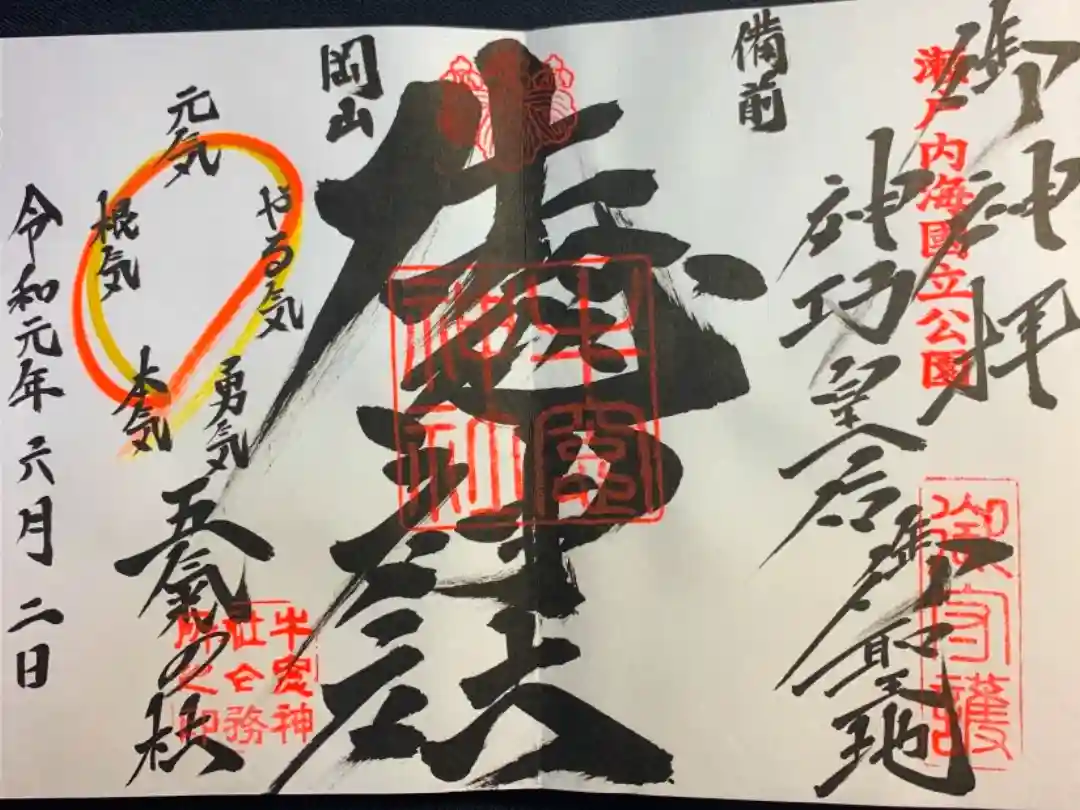 御神拝
瀬戸内海國立公園
神功皇后御聖地
御守護
備前
牛窓神社
牛窓
神社
岡山
元気
やる気
勇気
本気
根気
五氣の
牛窓神
社仝務
所之印
令和元年六月二日